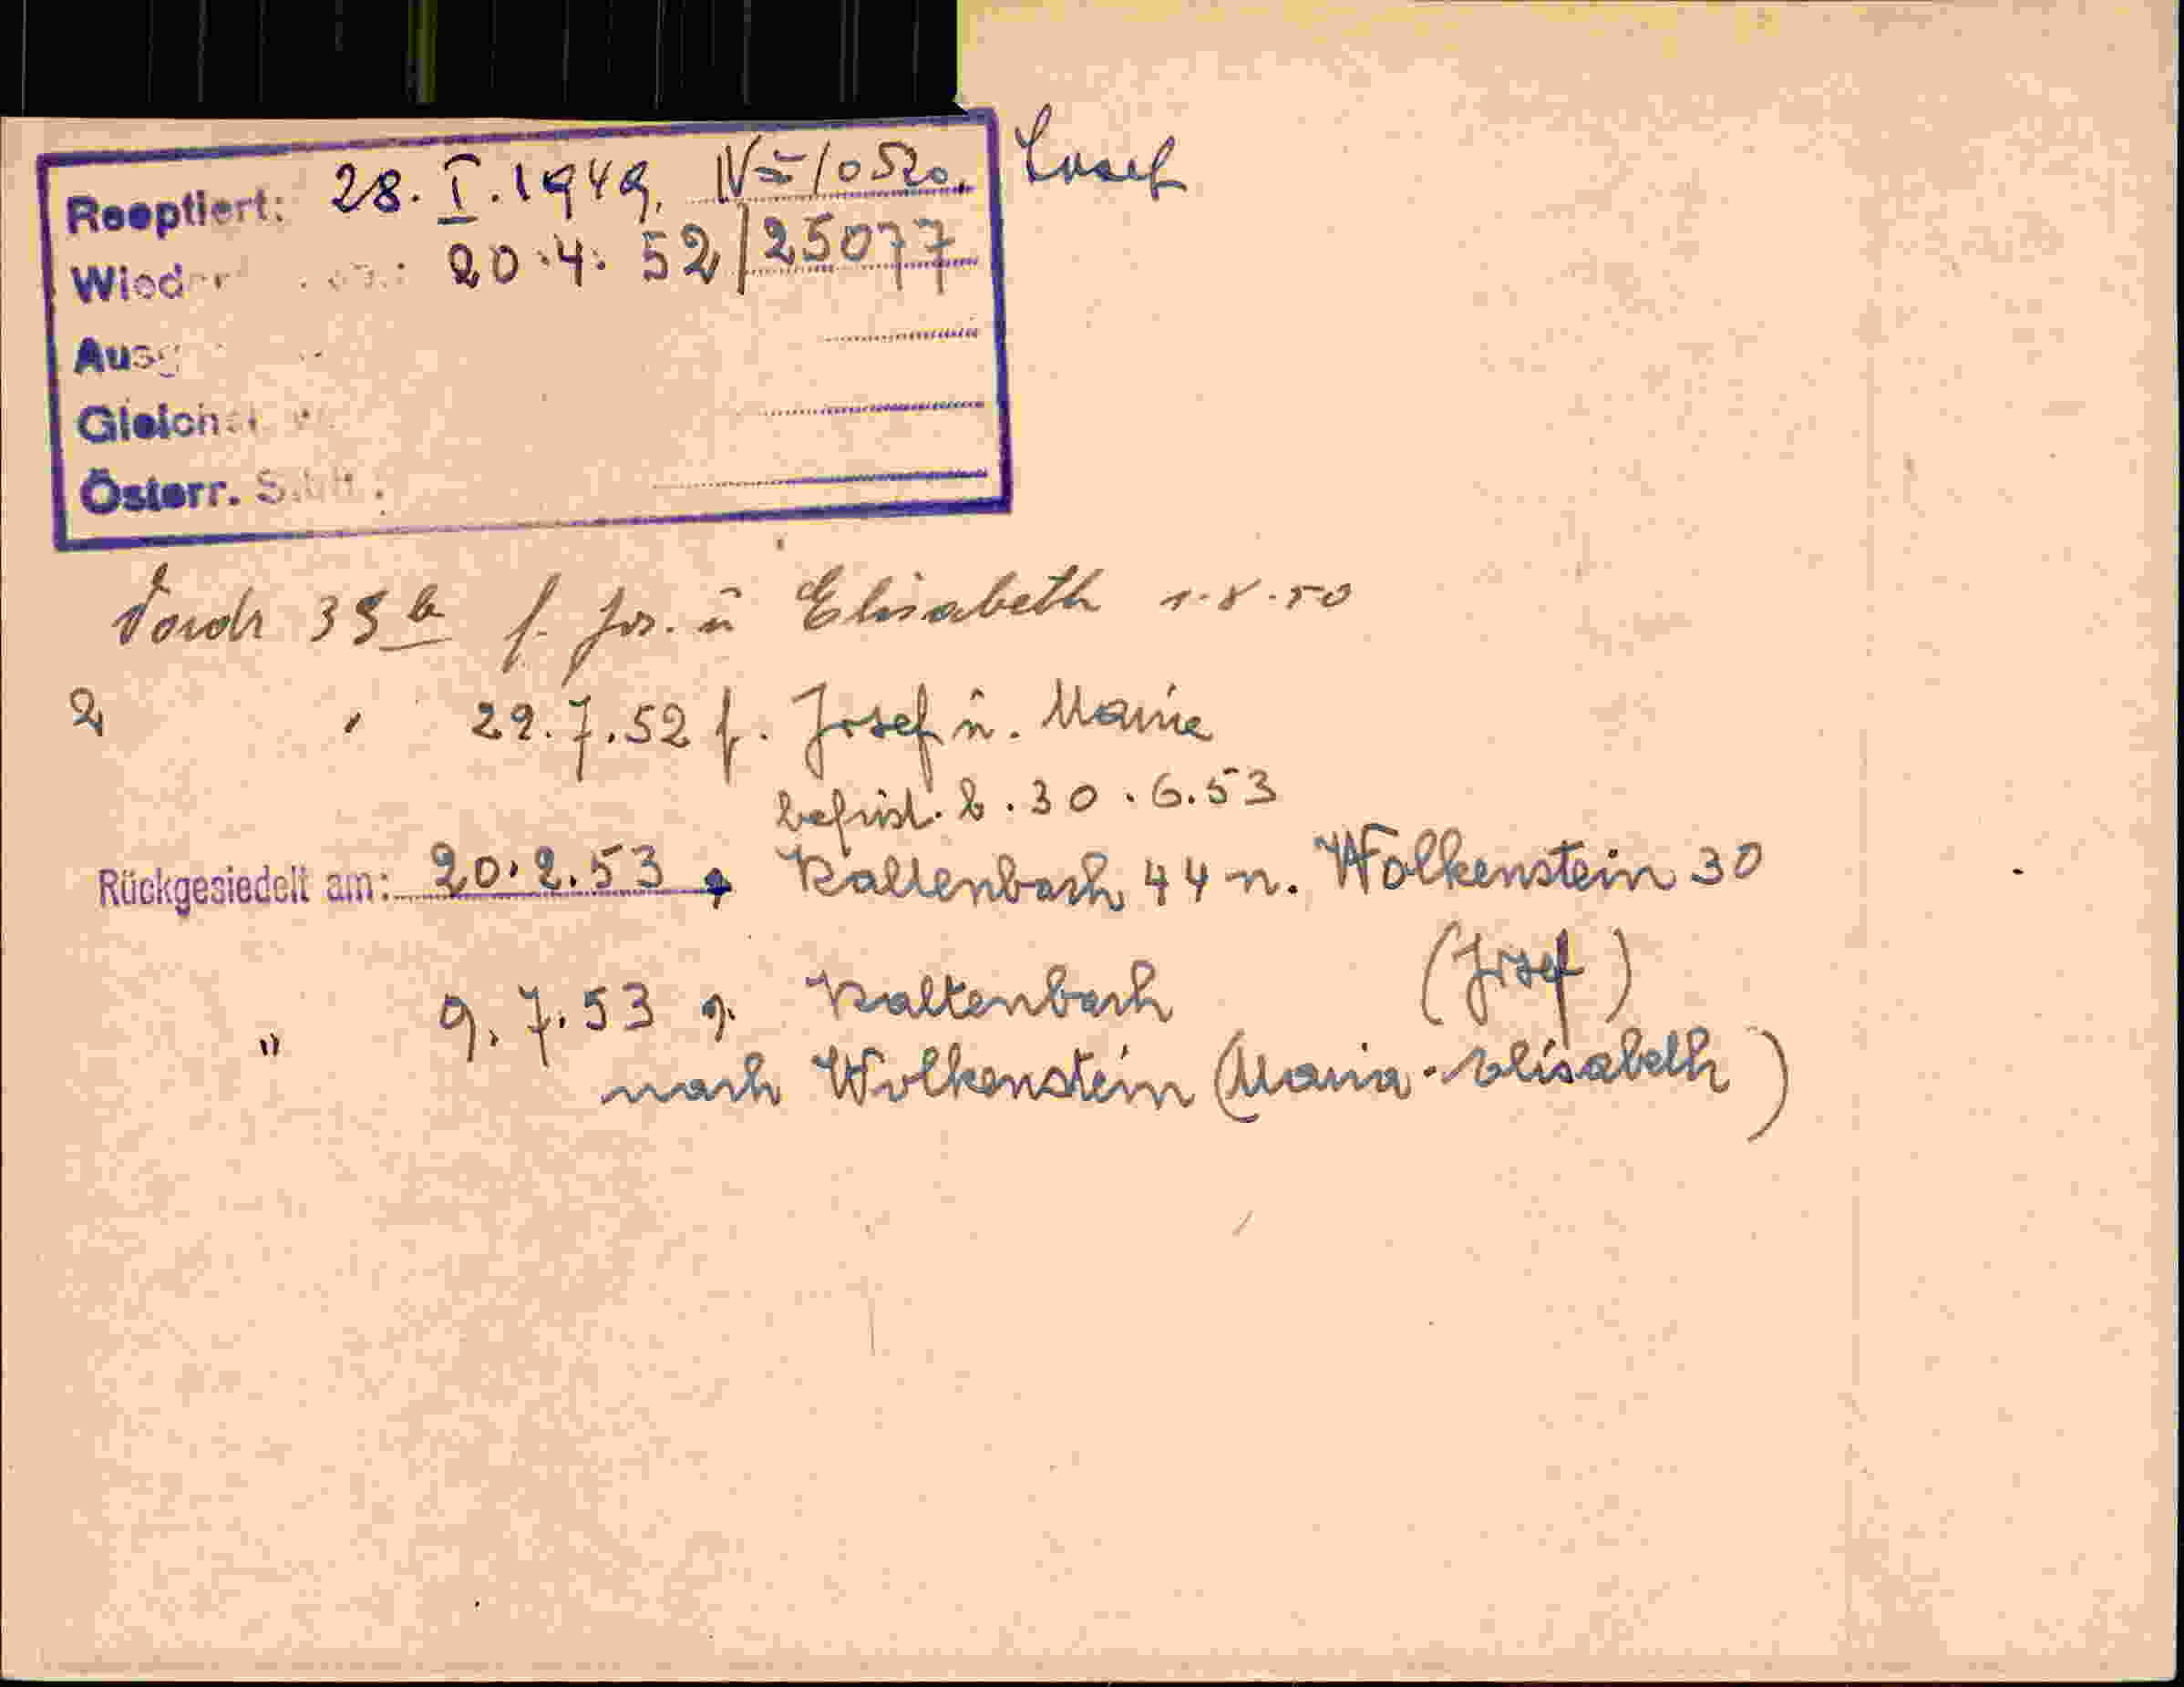 Reoptiert: 28. I. 1949. N= 10520. Josef
Wied 20.4.52/25077
Ausg
Gleich
Österr. S
35 b f. Jos. u Elisabeth 1.8.50
2, " 29.7.52 f. Josef u. Marie
befrist. b. 30.6.53
Rückgesiedelt am: 20.2.53 Kaltenbach 44 n. Wolkenstein 30
(Josef)
" 9.7.53 v. Kaltenbach
nach Wolkenstein (Maria-Elisabeth)